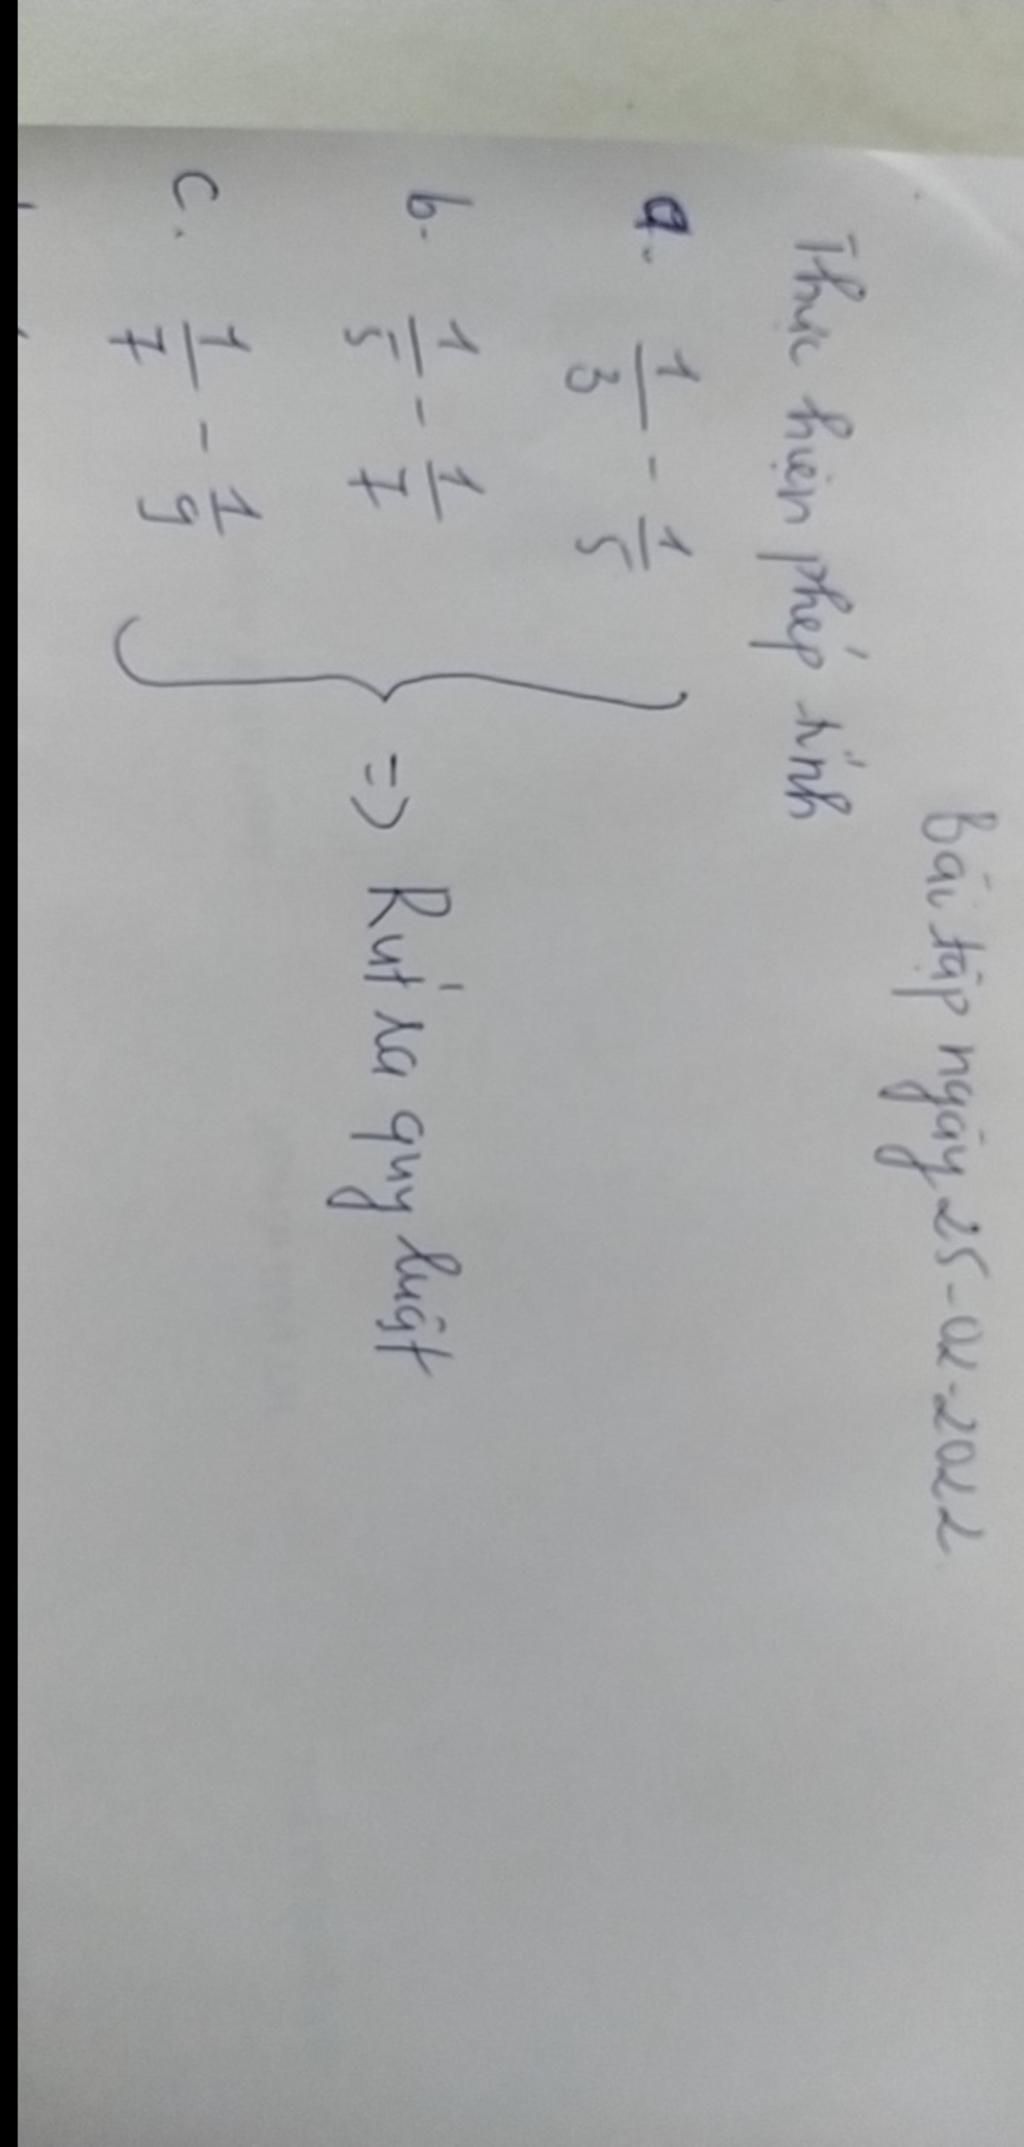 Bài tập ngày 25-02-2022
Thực hiện phép tính
a. 1/3 - 1/5
b. 1/5 - 1/7 => Rút ra quy luật
c. 1/7 - 1/9